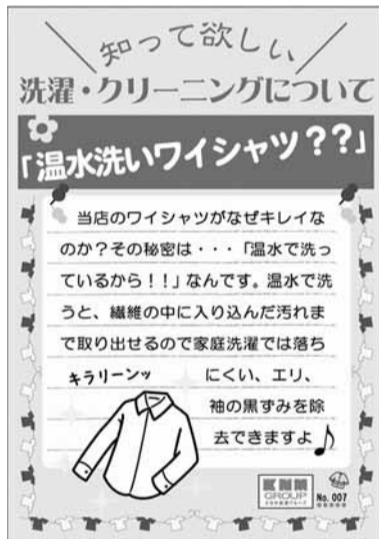 知って欲しい、
洗濯・クリーニングについて
「温水洗いワイシャツ??」
当店のワイシャツがなぜキレイな
のか?その秘密は・・・「温水で洗っ
ているから!!」なんです。温水で洗
うと、繊維の中に入り込んだ汚れま
で取り出せるので家庭洗濯では落ち
にくい、エリ、
袖の黒ずみを除
去できますよ♪
キラリーンッ
KNM
GROUP
No. 007